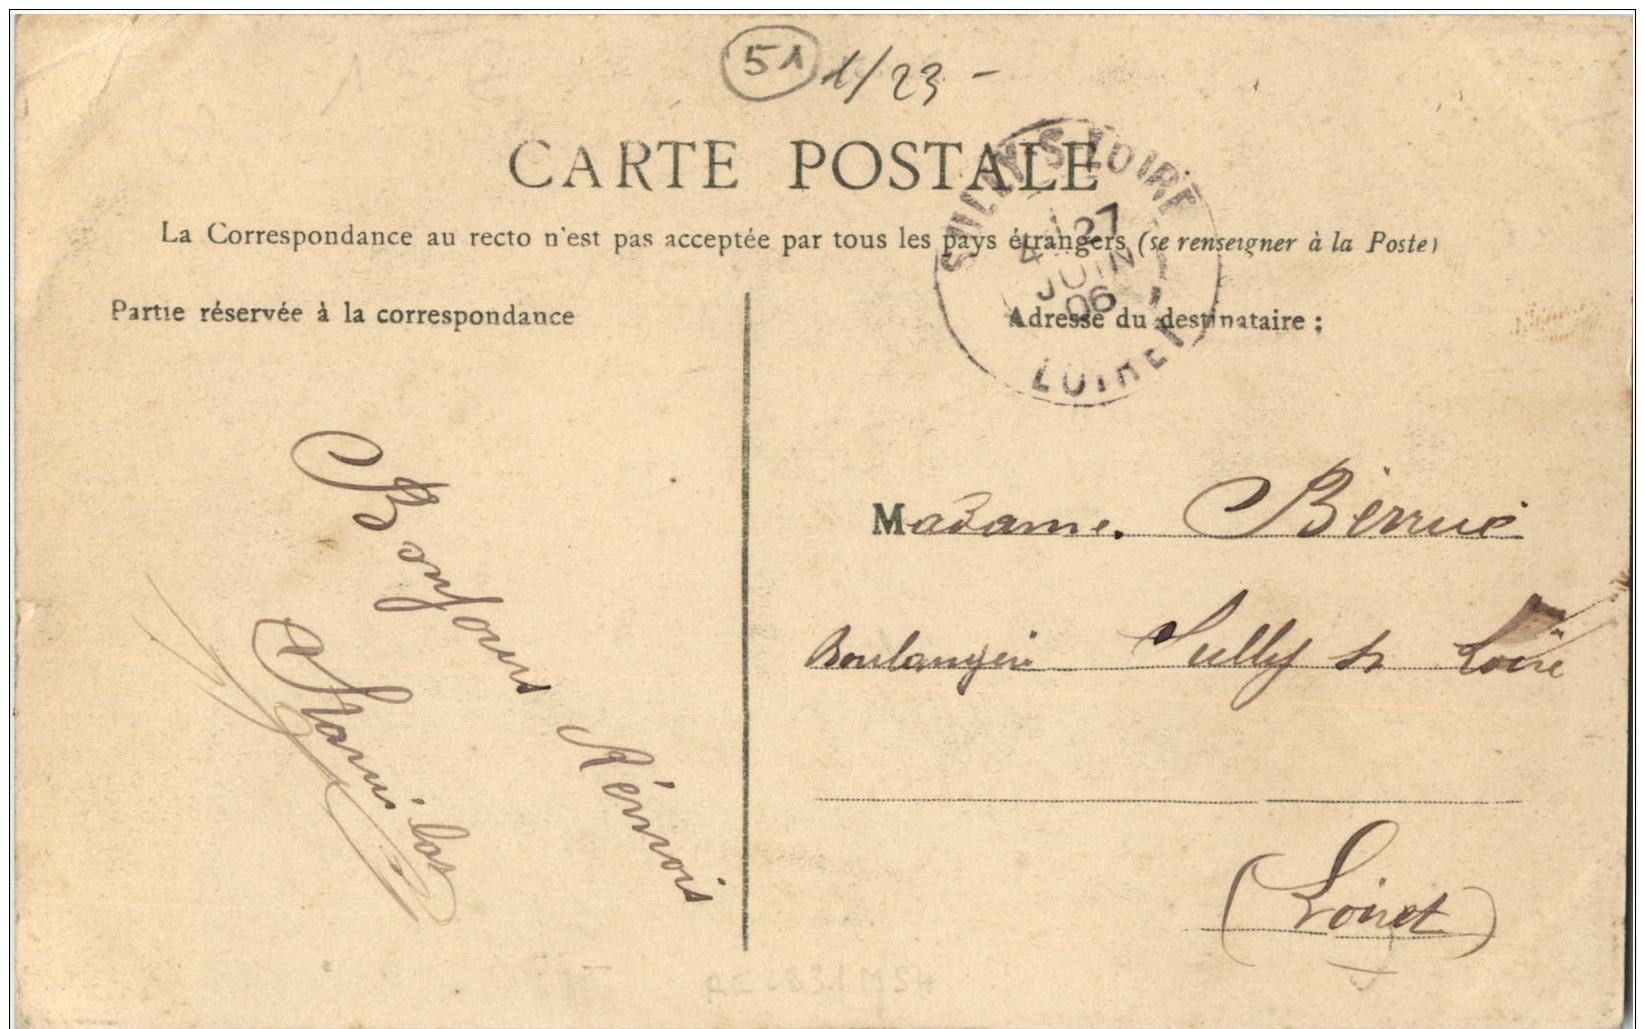 51 1/23 -
CARTE POSTALE
SULLY-S-LOIRE
4 27
JUIN
06
LOIRET
La Correspondance au recto n'est pas acceptée par tous les pays étrangers (se renseigner à la Poste)
Partie réservée à la correspondance
Adresse du destinataire :
Bonjours Rémois
Madame. Bérrué
Boulangère Sully sr Loire
(Loiret)